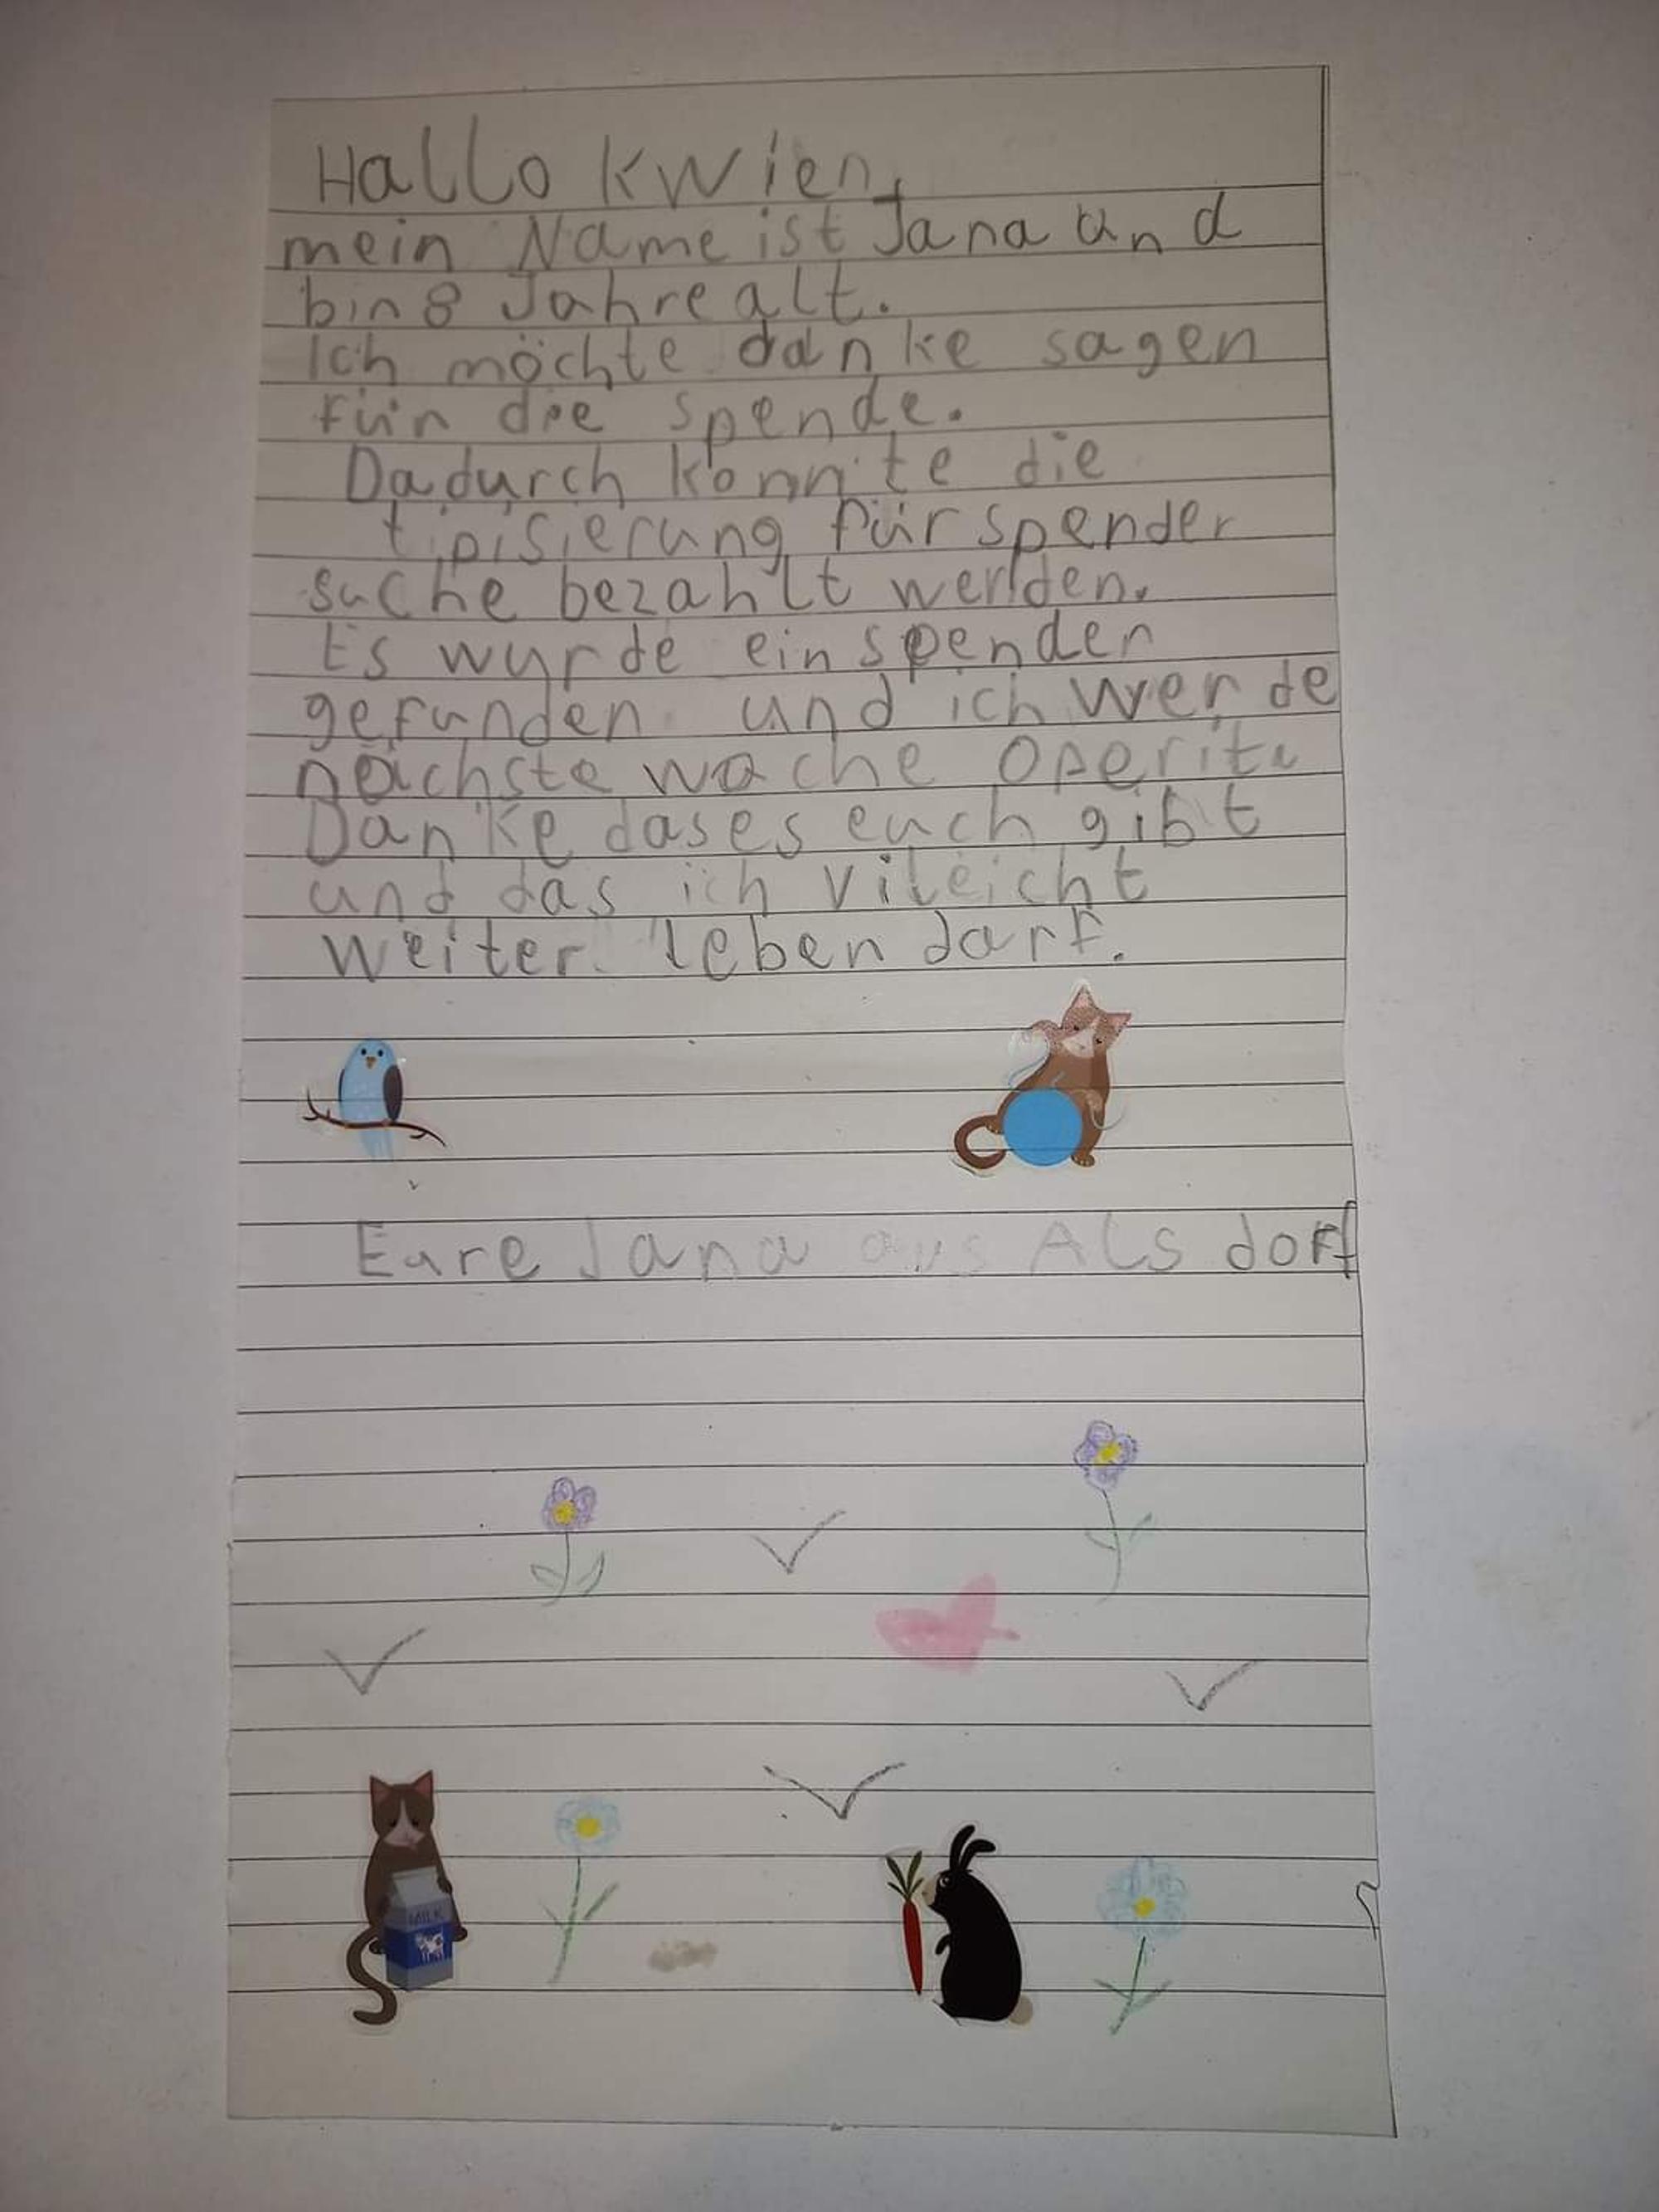 Hallo Kwien,
mein Name ist Jana und
bin 8 Jahre alt.
Ich möchte danke sagen
für die spende.
Dadurch konnte die
tipisierung für spender
suche bezahlt werden.
Es wurde ein spender
gefunden und ich werde
nächste woche operit
Danke das es euch gibt
und das ich vileicht
weiter leben darf.
Eure Jana aus Alsdorf
MILK